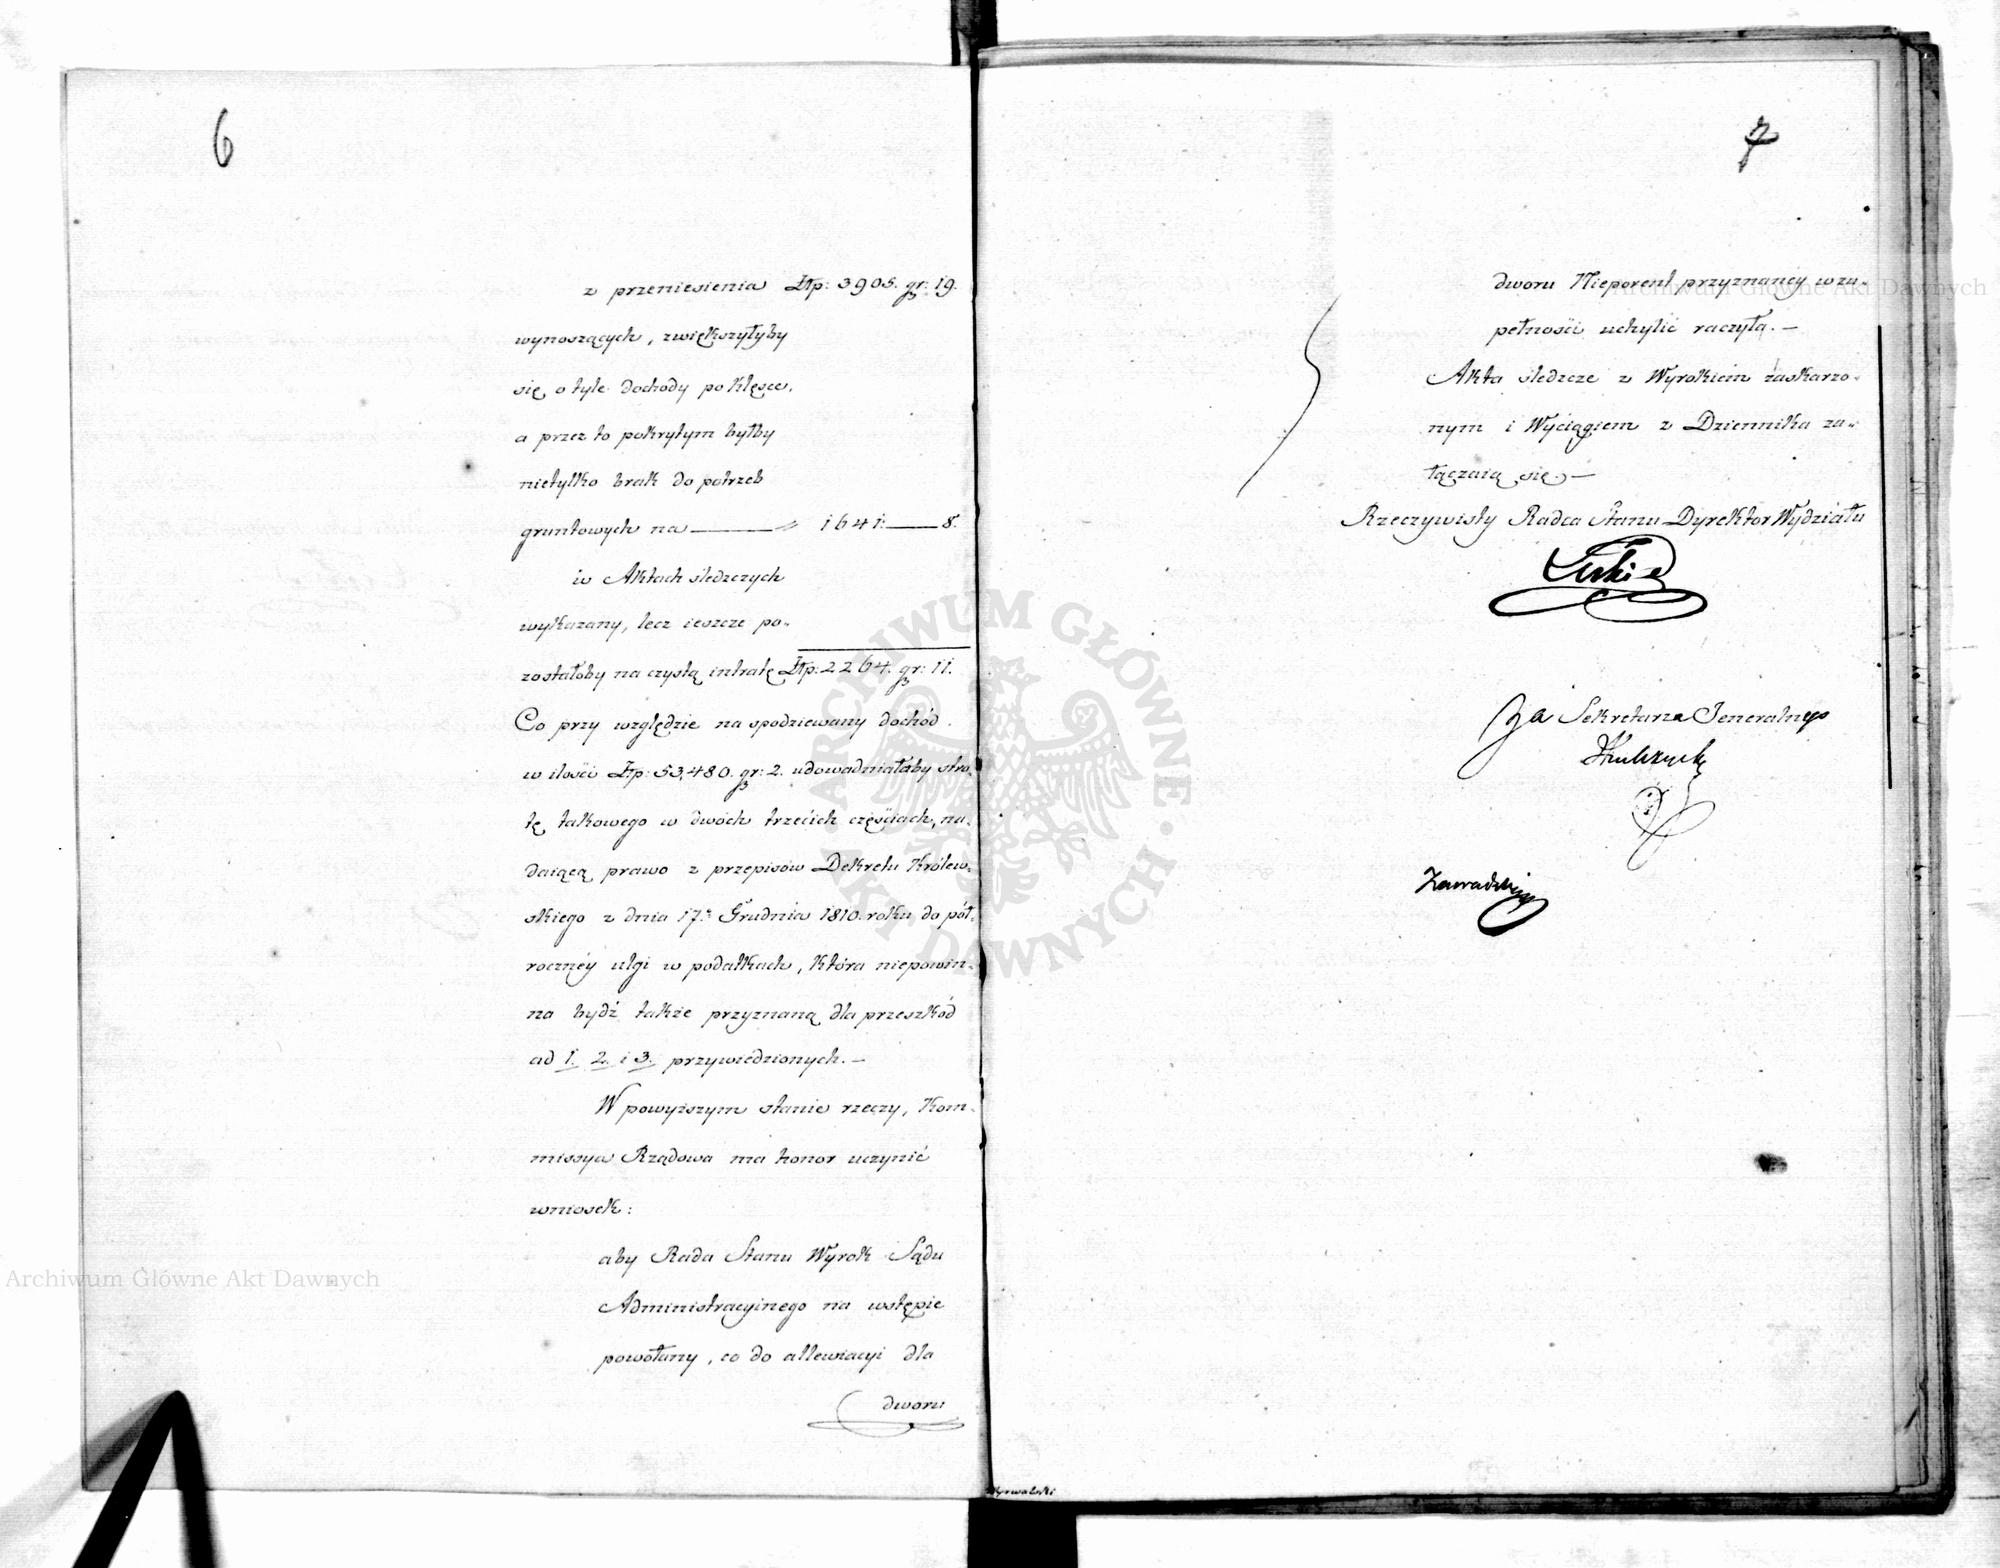 6
z przeniesienia Złp: 3905. gr: 19.
wynoszących, zwiększyłyby
się o tyle dochody po klęsce,
a przez to pokrytym byłby
nietylko brak do potrzeb
gruntowych na 1641. 8.
w Aktach śledczych
wykazany, lecz ieszcze po-
zostałoby na czystą intratę Złp: 2264. gr: 11.
Co przy względzie na spodziewany dochód
w ilości Złp: 53,480. gr: 2. udowadniałaby stra-
tę takowego w dwóch trzecich częściach, na-
daiącą prawo z przepisów Dekretu Królew-
skiego z dnia 17. Grudnia 1810. roku do pół-
rocznéy ulgi w podatkach, która niepowin-
na bydź także przyznaną dla przeszkód
ad 1. 2. i 3. przywiedzionych. —
W powyższym stanie rzeczy, Kom-
missya Rządowa ma honor uczynić
wniosek:
aby Rada Stanu Wyrok Sądu
Administracyinego na wstępie
powołany, co do allewiacyi dla
dworu
7
dworu Nieporent przyznanéy w zu-
pełności uchylić raczyła. —
Akta śledcze z Wyrokiem zaskarzo-
nym i Wyciągiem z Dziennika za-
łączaią się. —
Rzeczywisty Radca Stanu Dyrektor Wydziału
za Sekretarza Jeneralnego
Kulczycki
Zawadzki
Archiwum Główne Akt Dawnych
Archiwum Główne Akt Dawnych
ARCHIWUM GŁÓWNE AKT DAWNYCH